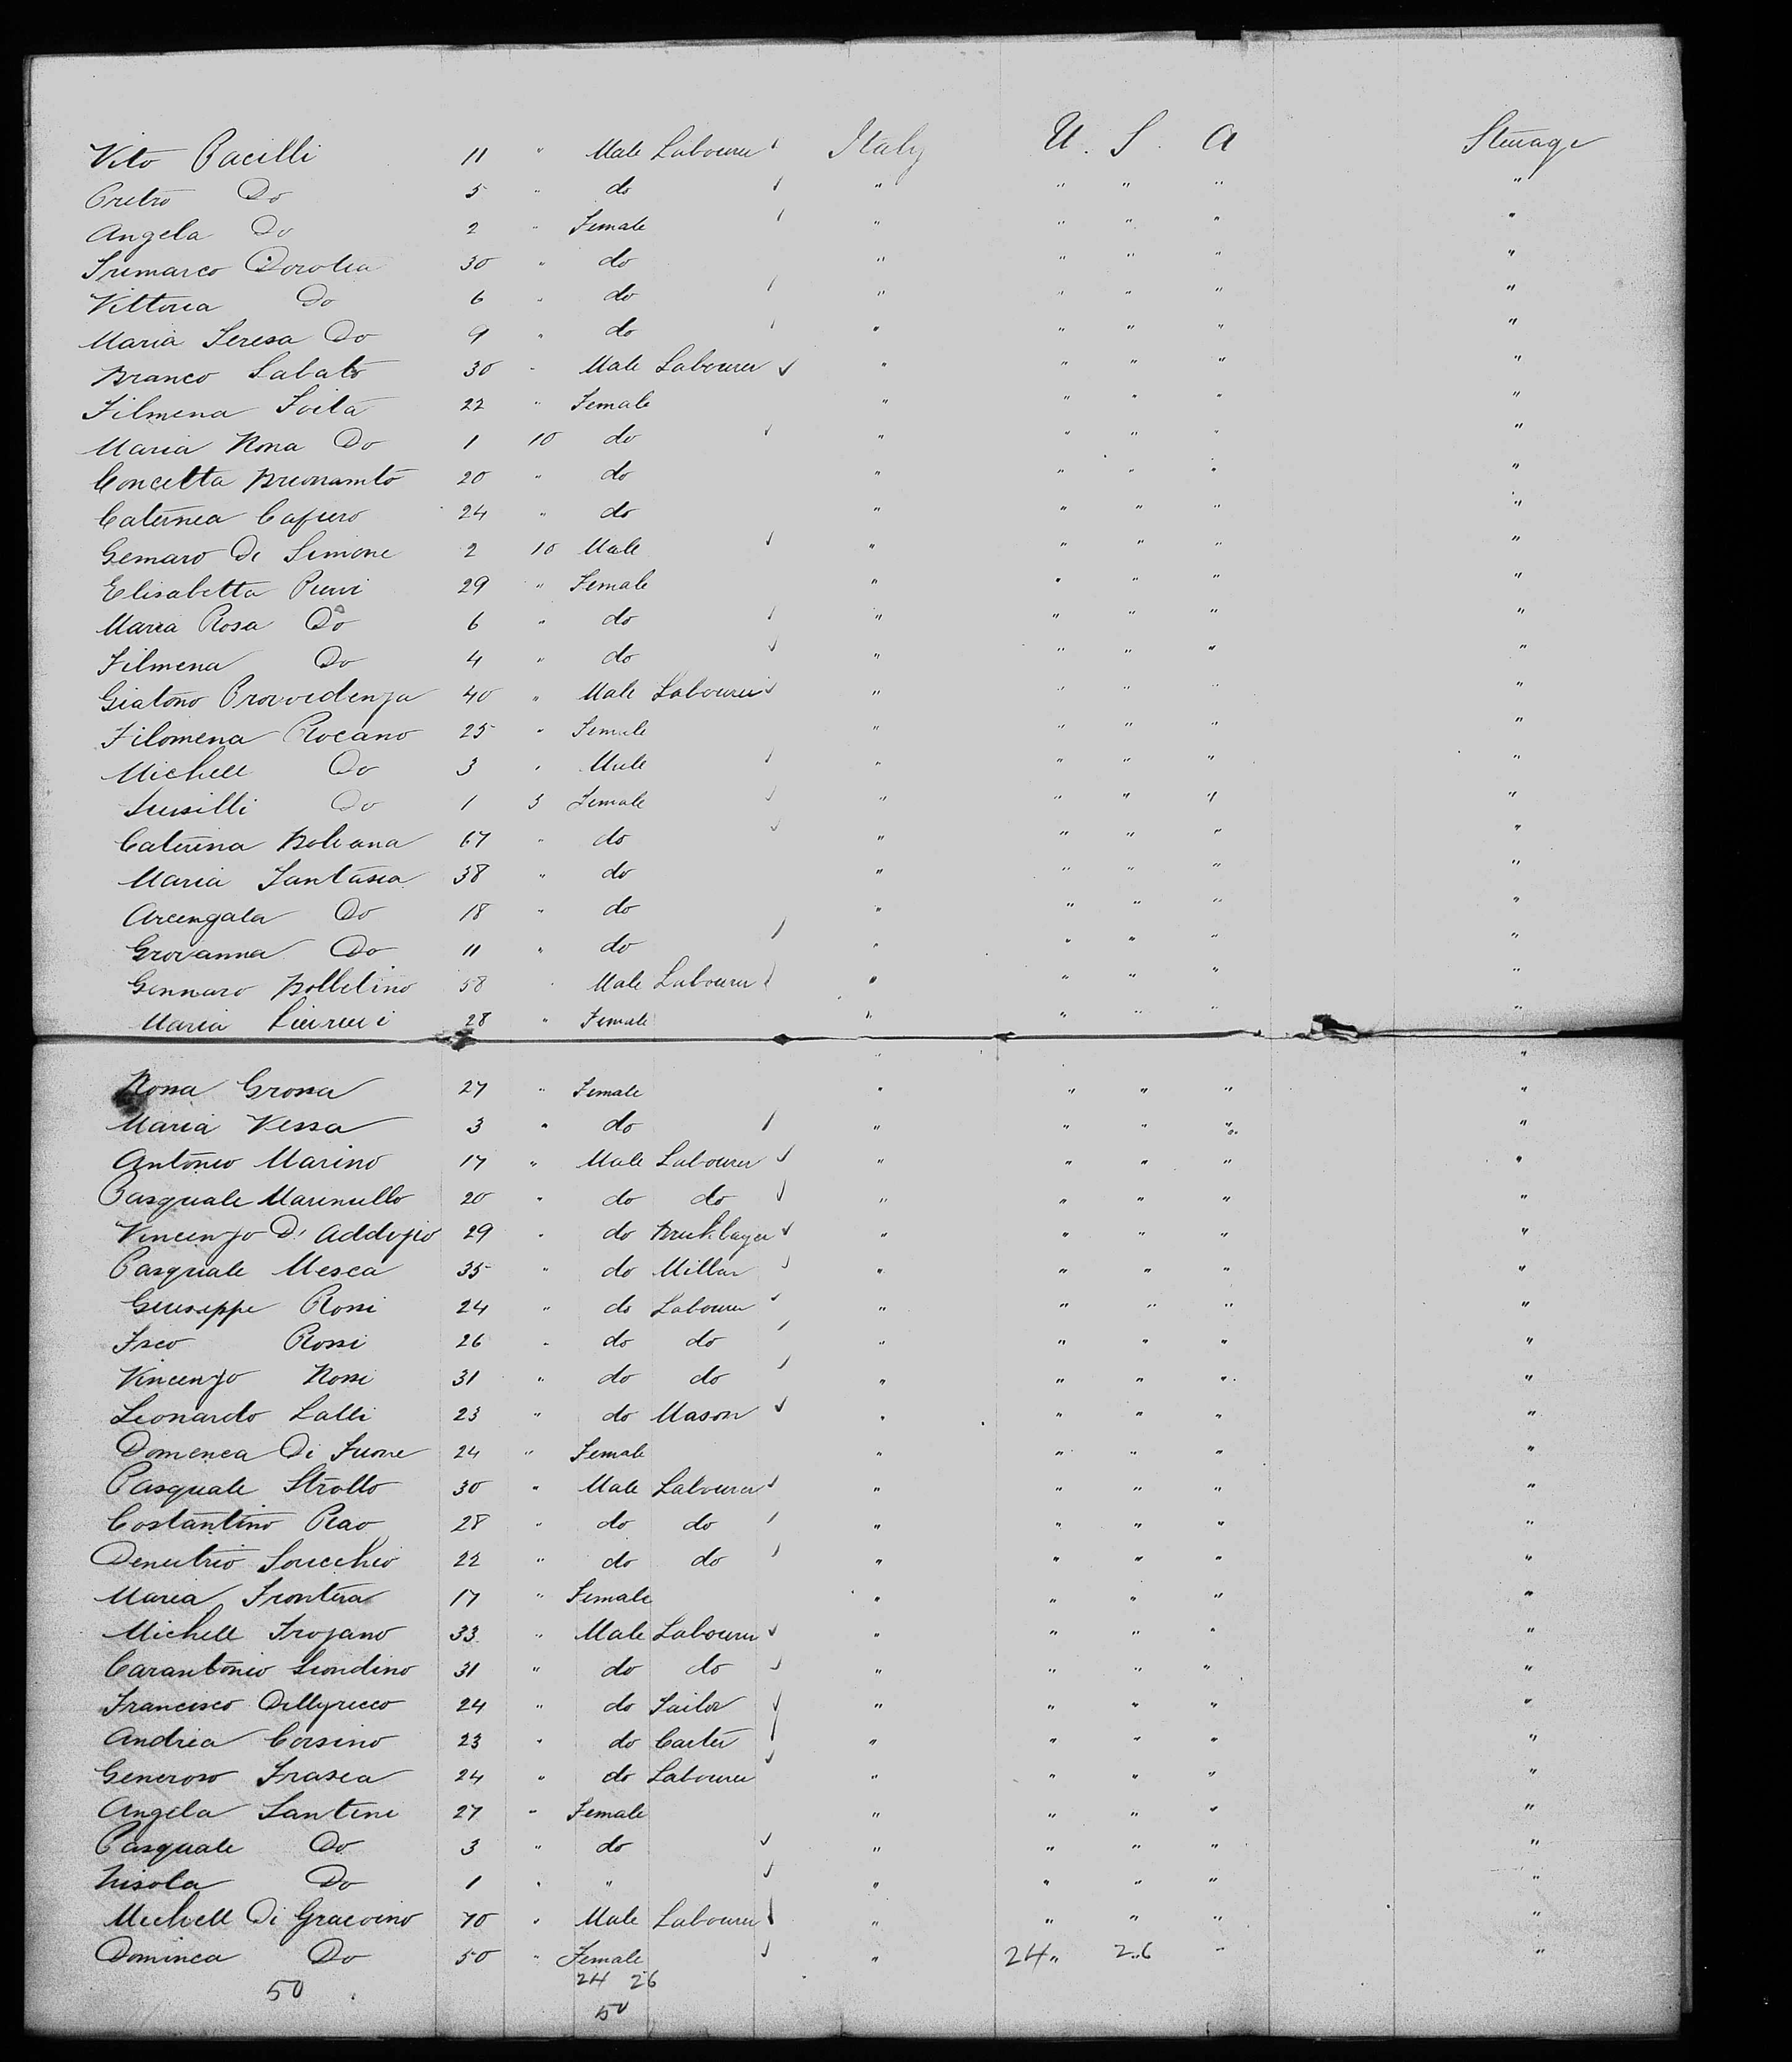 Vito Pacilli 11 " Male Labourer Italy U. S. A Steerage
Pietro Do 5 " do " " " " "
Angela Do 2 " Female " " " " "
Tremarco Dorotea 30 " do " " " " "
Vittoria Do 6 " do " " " " "
Maria Teresa Do 9 " do " " " " "
Branco Sabato 30 " Male Labourer " " " " "
Filmena Ioita 22 " Female " " " " "
Maria Rosa Do 1 10 do " " " " "
Concetta 20 " do " " " " "
Caterina Cafiero 24 " do " " " " "
Gemaro De Simone 2 10 Male " " " " "
Elisabetta 29 " Female " " " " "
Maria Rosa Do 6 " do " " " " "
Filmena Do 4 " do " " " " "
Giatono Provvedenza 40 " Male Labourer " " " " "
Filomena Rocano 25 " Female " " " " "
Michele Do 3 " Male " " " " "
Do 1 3 Female " " " " "
Caterina Bolvana 67 " do " " " " "
Maria Santasia 38 " do " " " " "
Arcengala Do 18 " do " " " " "
Giovanna Do 11 " do " " " " "
Gennaro Bolletino 58 " Male Labourer " " " " "
Maria 28 " Female " " " " "
Rossa Grossa 27 " Female " " " " "
Maria Vessa 3 " do " " " " "
Antonio Marino 17 " Male Labourer " " " " "
Pasquale Marinullo 20 " do do " " " " "
Vincenzo D' Addozio 29 " do Bricklayer " " " " "
Pasquale Mesca 35 " do Millar " " " " "
Giuseppe Rossi 24 " do Labourer " " " " "
Isco Rossi 26 " do do " " " " "
Vincenzo Rossi 31 " do do " " " " "
Leonardo Lalli 23 " do Mason " " " " "
Domenca Di Fuore 24 " Female " " " " "
Pasquale Strollo 30 " Male Labourer " " " " "
Costantino Reao 28 " do do " " " " "
Demetrio Soricchio 22 " do do " " " " "
Maria Frontera 17 " Female " " " " "
Michele Trojano 33 " Male Labourer " " " " "
Carantonio Liondino 31 " do do " " " " "
Francisco Dellyricco 24 " do Tailor " " " " "
Andrea Corsino 23 " do Carter " " " " "
Generoso Frasca 24 " do Labourer " " " " "
Angela Santini 27 " Female " " " " "
Pasquale Do 3 " do " " " " "
Nisola Do 1 " " " " " " "
Michele Di Gracoino 70 " Male Labourer " " " " "
Dominca Do 50 " Female " 24 " 26 " "
50 24 26
50